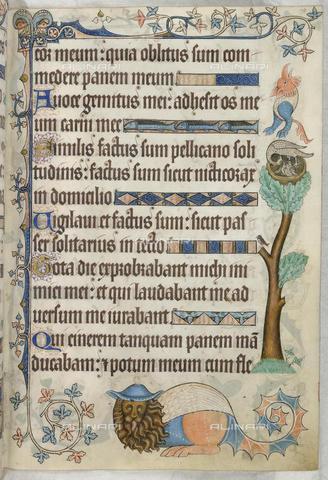 cor meum: quia oblitus sum com
medere panem meum
A voce gemitus mei: adhesit os me
um carni mee
Similis factus sum pellicano soli
tudinis: factus sum sicut nicticorax
in domicilio
Vigilavi et factus sum: sicut pas
ser solitarius in tecto
Tota die exprobrabant michi ini
mici mei: et qui laudabant me ad
versum me iurabant
Quia cinerem tanquam panem mā
ducabam: et potum meum cum fle
ALINARI
ALINARI
ALINARI
ALINARI